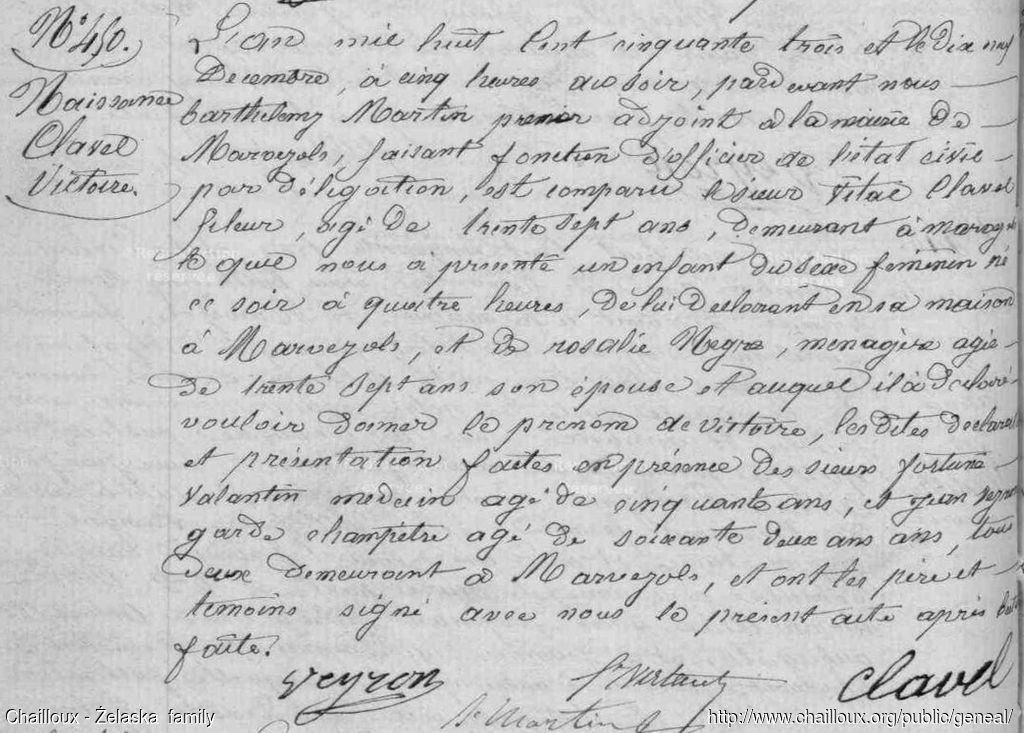 N.° 450.
Naissance
Clavel
Victoire.
L'an mil huit Cent cinquante trois et le dix neuf
Decembre, à cinq heures du soir, pardevant nous
barthelemy Martin premier adjoint à la mairie de
Marvejols, faisant fonction d'officier de l'état civil
par délégation, est comparu le sieur Vital Clavel
fileur, agé de trente sept ans, demeurant à
le quel nous à présenté un enfant du sexe feminin né
ce soir à quatre heures, de lui declarant en sa maison
à Marvejols, et de rosalie Negre, menagère agée
de trente sept ans son épouse et auquel il à declaré
vouloir donner le prénom de victoire, les dites
et présentation faites en présence des sieurs fortuné
Valantin medecin agé de cinquante ans, et Jean
garde champêtre agé de soixante deux ans ans, tou
deux demeurant à Marvejols, et ont les père et
temoins signé avec nous le présent acte après
faite.
veyron
clavel
Martin
Chailloux - Żelaska family
http://www.chailloux.org/public/geneal/